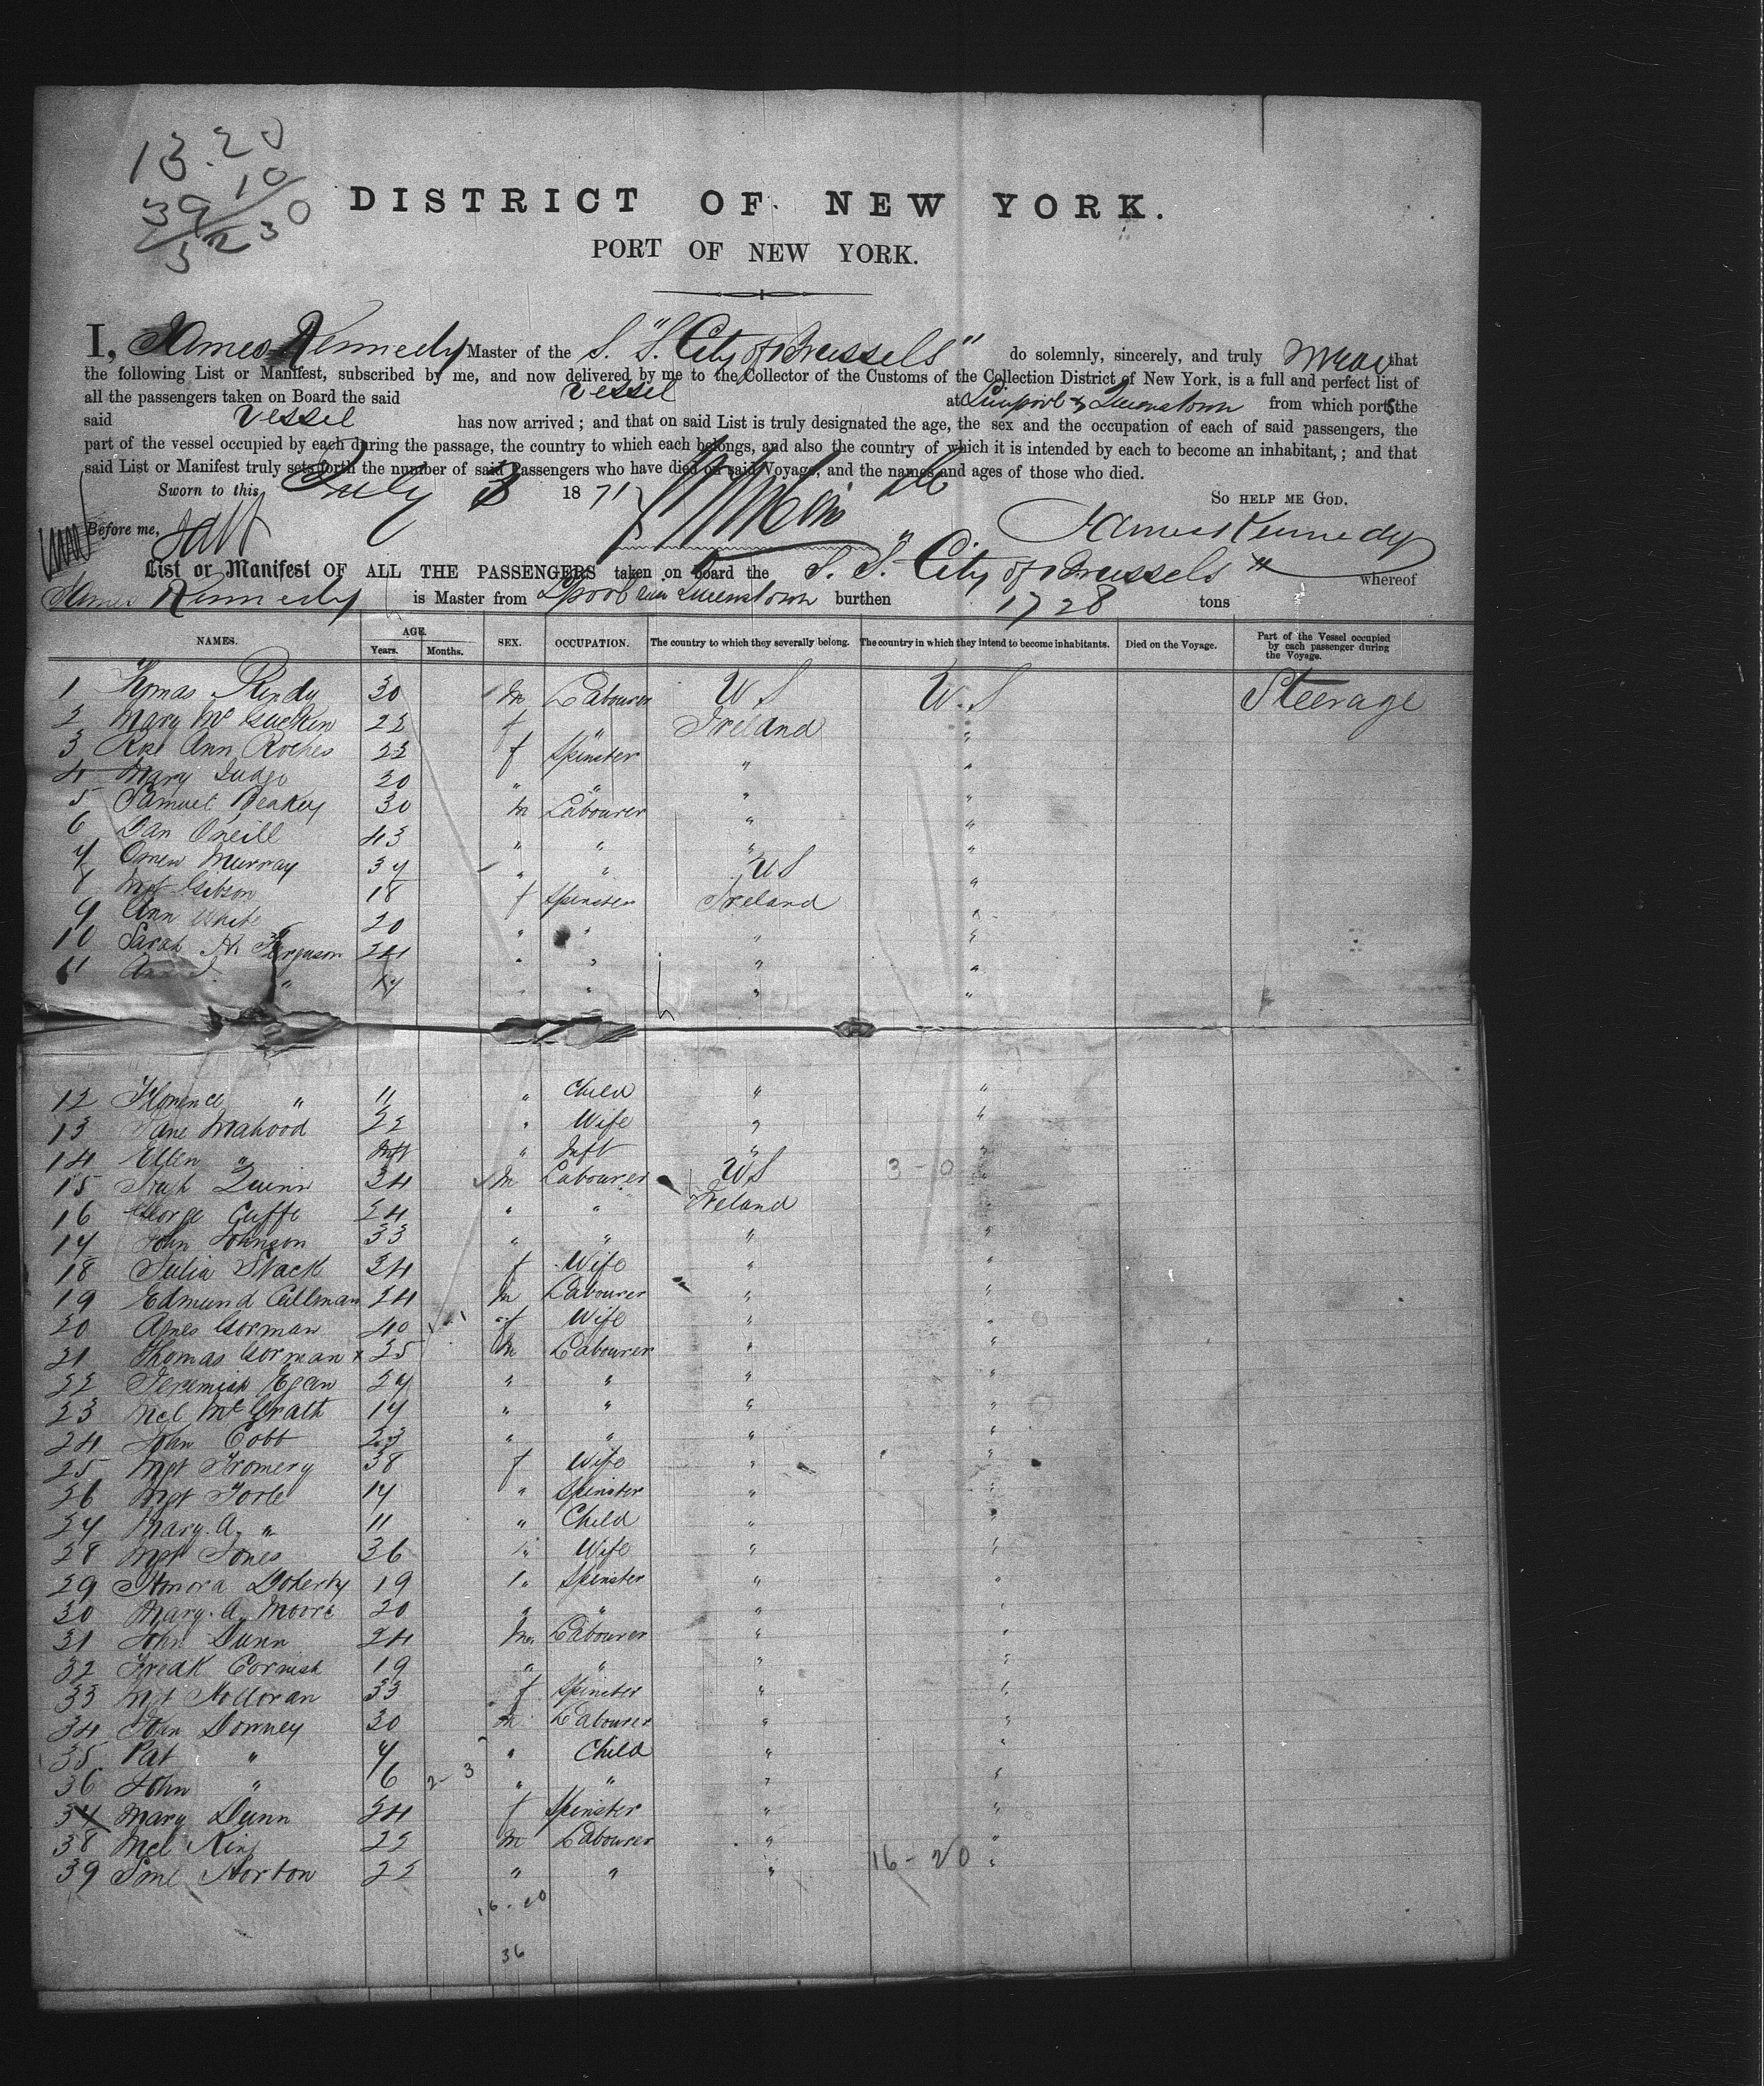 13.20
10
39
52 30
DISTRICT OF NEW YORK.
PORT OF NEW YORK.
I, James Kennedy Master of the S. "S. City of Brussels" do solemnly, sincerely, and truly swear that
the following List or Manifest, subscribed by me, and now delivered by me to the Collector of the Customs of the Collection District of New York, is a full and perfect list of
all the passengers taken on Board the said vessel at Liverpool & Queenstown from which ports the
said vessel has now arrived; and that on said List is truly designated the age, the sex and the occupation of each of said passengers, the
part of the vessel occupied by each during the passage, the country to which each belongs, and also the country of which it is intended by each to become an inhabitant,; and that
said List or Manifest truly sets forth the number of said Passengers who have died on said Voyage, and the names and ages of those who died.
Sworn to this July 3 1871 SO HELP ME GOD.
Before me, James Kennedy
List or Manifest OF ALL THE PASSENGERS taken on board the S. S. "City of Brussels" whereof
James Kennedy is Master from Lpool and Queenstown burthen 1728 tons
NAMES. AGE. Years. Months. SEX. OCCUPATION. The country to which they severally belong. The country in which they intend to become inhabitants. Died on the Voyage. Part of the Vessel occupied by each passenger during the Voyage.
1 Thomas 30 m Labourer U S U.S Steerage
2 Mary Mc Guckin 22 f " Ireland "
3 Rose Ann Roches 22 f Spinster " "
4 Mary Judge 20 " " " "
5 Samuel Beakey 30 m Labourer " "
6 Dan Oneill 43 " " " "
7 Owen Murray 37 " " U S "
8 Mgt Gibson 18 f Spinster Ireland "
9 Ann White 20 " " " "
10 Sarah A. Ferguson 24 " " " "
11 " 17 " " " "
12 Florence " 11 " Child " "
13 Jane Mahood 22 " Wife " "
14 Ellen " Inft " Inft " "
15 Quinn 24 m Labourer U S 3-0 "
16 George Cuffe 24 " " Ireland "
17 John Johnson 33 " " " "
18 Julia Stack 24 f Wife " "
19 Edmund Cullman 24 m Labourer " "
20 Agnes Gorman 40 f Wife " "
21 Thomas Gorman x 25 m Labourer " "
22 Jeremiah Egan 27 " " " "
23 Mcl McGrath 17 " " " "
24 John Cobb 23 " " " "
25 Mgt Tromery 38 f Wife " "
26 Mgt Toole 17 " Spinster " "
27 Mary. A. " 11 " Child " "
28 Mgt Jones 26 " Wife " "
29 Honora Doherty 19 " Spinster " "
30 Mary. A. Moore 20 " " " "
31 John Dunn 24 m Labourer " "
32 Fredk Cornish 19 " " " "
33 Mgt Holloran 33 f Spinster " "
34 John Downey 30 m Labourer " "
35 Pat " 7 " Child " "
36 John " 6 2- 3 " " " "
37 Mary Dunn 24 f Spinster " "
38 Mcl King 22 m Labourer " "
39 Saml Norton 22 " " " 16-20 "
16-20
36